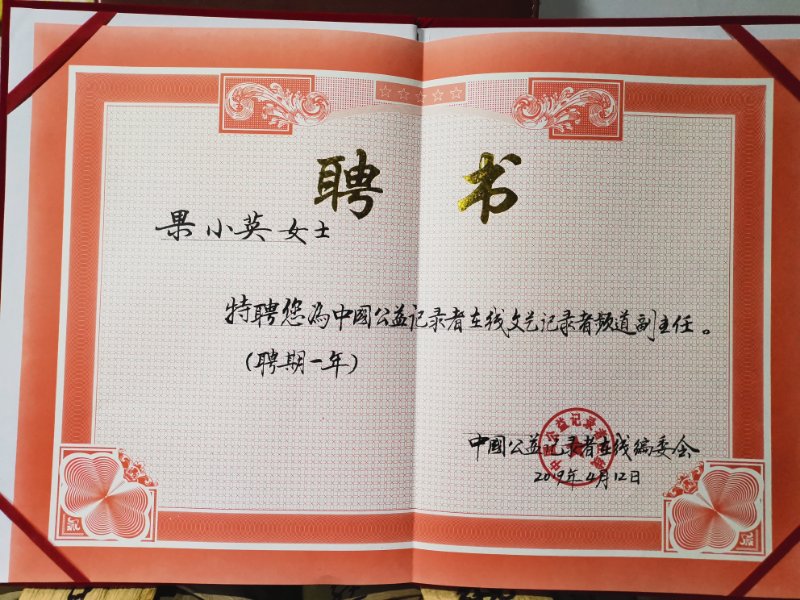 聘 书
果小英女士
特聘您为中國公益记录者在线文艺记录者频道副主任。
(聘期一年)
中國公益记录者在线编委会
2019年4月12日